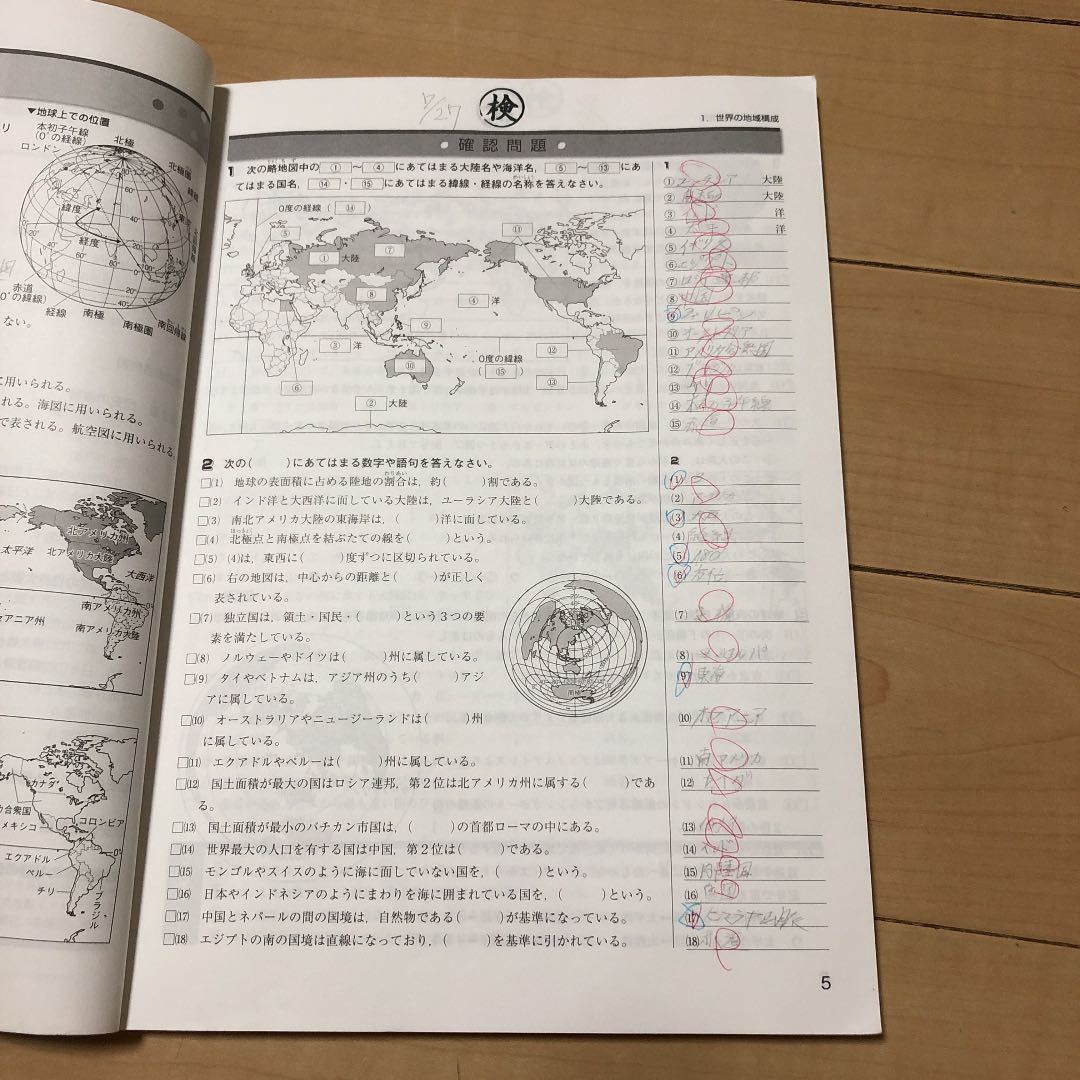 ▼地球上での位置
本初子午線
(0°の経線)
ロンドン
北極
北極圏
緯度
経度
赤道
0°の緯線)
経線
南極
南極圏
南回帰線
ない。
に用いられる。
れる。海図に用いられる。
で表される。航空図に用いられる。
北アメリカ州
北アメリカ大陸
太平洋
大西洋
南アメリカ州
セアニア州
南アメリカ大陸
カナダ
カ合衆国
メキシコ
コロンビア
エクアドル
ペルー
チリ
ブラジル
7/27
検
1. 世界の地域構成
・確認問題・
1 次の略地図中の①～④にあてはまる大陸名や海洋名，⑤～⑬にあ
てはまる国名，⑭・⑮にあてはまる緯線・経線の名称を答えなさい。
0度の経線(⑭)
⑤
⑦
⑪
①大陸
⑧
④洋
⑨
③洋
⑩
0度の緯線
(⑮)
⑫
⑥
⑬
②大陸
2 次の(　　)にあてはまる数字や語句を答えなさい。
□(1) 地球の表面積に占める陸地の割合は，約(　　)割である。
□(2) インド洋と大西洋に面している大陸は，ユーラシア大陸と(　　)大陸である。
□(3) 南北アメリカ大陸の東海岸は，(　　)洋に面している。
□(4) 北極点と南極点を結ぶたての線を(　　)という。
□(5) (4)は，東西に(　　)度ずつに区切られている。
□(6) 右の地図は，中心からの距離と(　　)が正しく
表されている。
□(7) 独立国は，領土・国民・(　　)という3つの要
素を満たしている。
□(8) ノルウェーやドイツは(　　)州に属している。
□(9) タイやベトナムは，アジア州のうち(　　)アジ
アに属している。
□(10) オーストラリアやニュージーランドは(　　)州
に属している。
□(11) エクアドルやペルーは(　　)州に属している。
□(12) 国土面積が最大の国はロシア連邦，第2位は北アメリカ州に属する(　　)であ
る。
□(13) 国土面積が最小のバチカン市国は，(　　)の首都ローマの中にある。
□(14) 世界最大の人口を有する国は中国，第2位は(　　)である。
□(15) モンゴルやスイスのように海に面していない国を，(　　)という。
□(16) 日本やインドネシアのようにまわりを海に囲まれている国を，(　　)という。
□(17) 中国とネパールの間の国境は，自然物である(　　)が基準になっている。
□(18) エジプトの南の国境は直線になっており，(　　)を基準に引かれている。
南極
1
① ユーラシア 大陸
② 大陸
③ 洋
④ 洋
⑤ イギリス
⑥ エジプト
⑦
⑧ 中国
⑨ フィリピン
⑩ オーストラリア
⑪ アメリカ合衆国
⑫
⑬
⑭
⑮
2
(1)
(2)
(3)
(4)
(5) 180
(6) 方位
(7)
(8)
(9) 東南
(10) オセアニア
(11) 南アメリカ
(12) カナダ
(13)
(14) インド
(15) 内陸国
(16)
(17) ヒマラヤ山脈
(18)
5